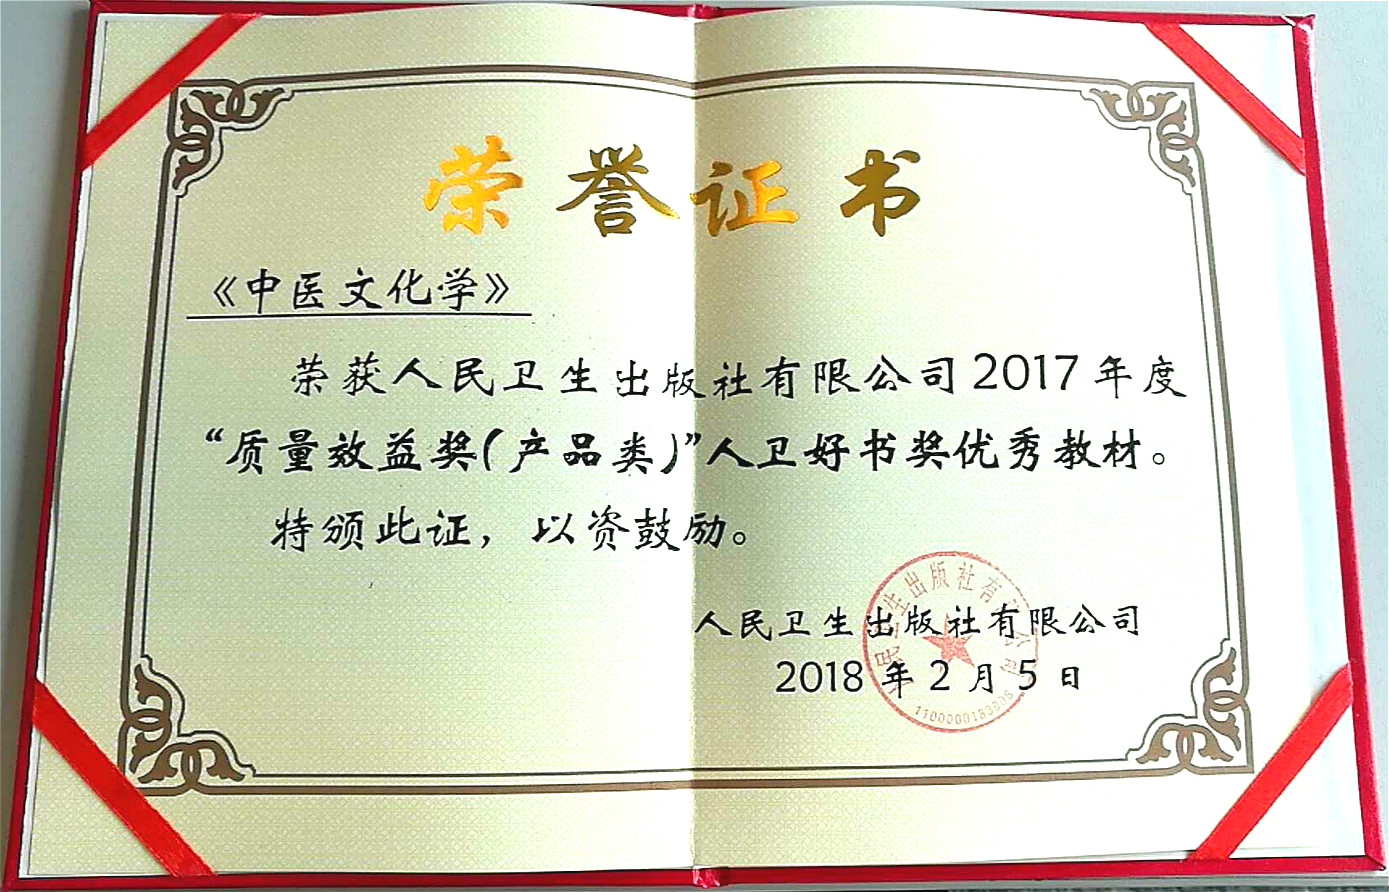 荣誉证书
《中医文化学》
荣获人民卫生出版社有限公司2017年度
“质量效益奖(产品类)”人卫好书奖优秀教材。
特颁此证，以资鼓励。
人民卫生出版社有限公司
2018年2月5日